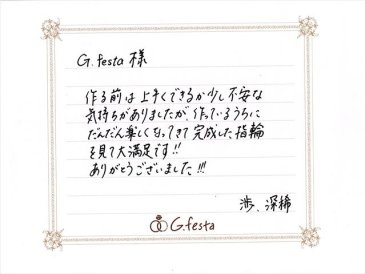 G.festa 様
作る前は上手くできるか少し不安な
気持ちがありましたが、作っているうちに
だんだん楽しくなってきて完成した指輪
を見て大満足です!!
ありがとうございました!!!
渉、深稀
G.festa